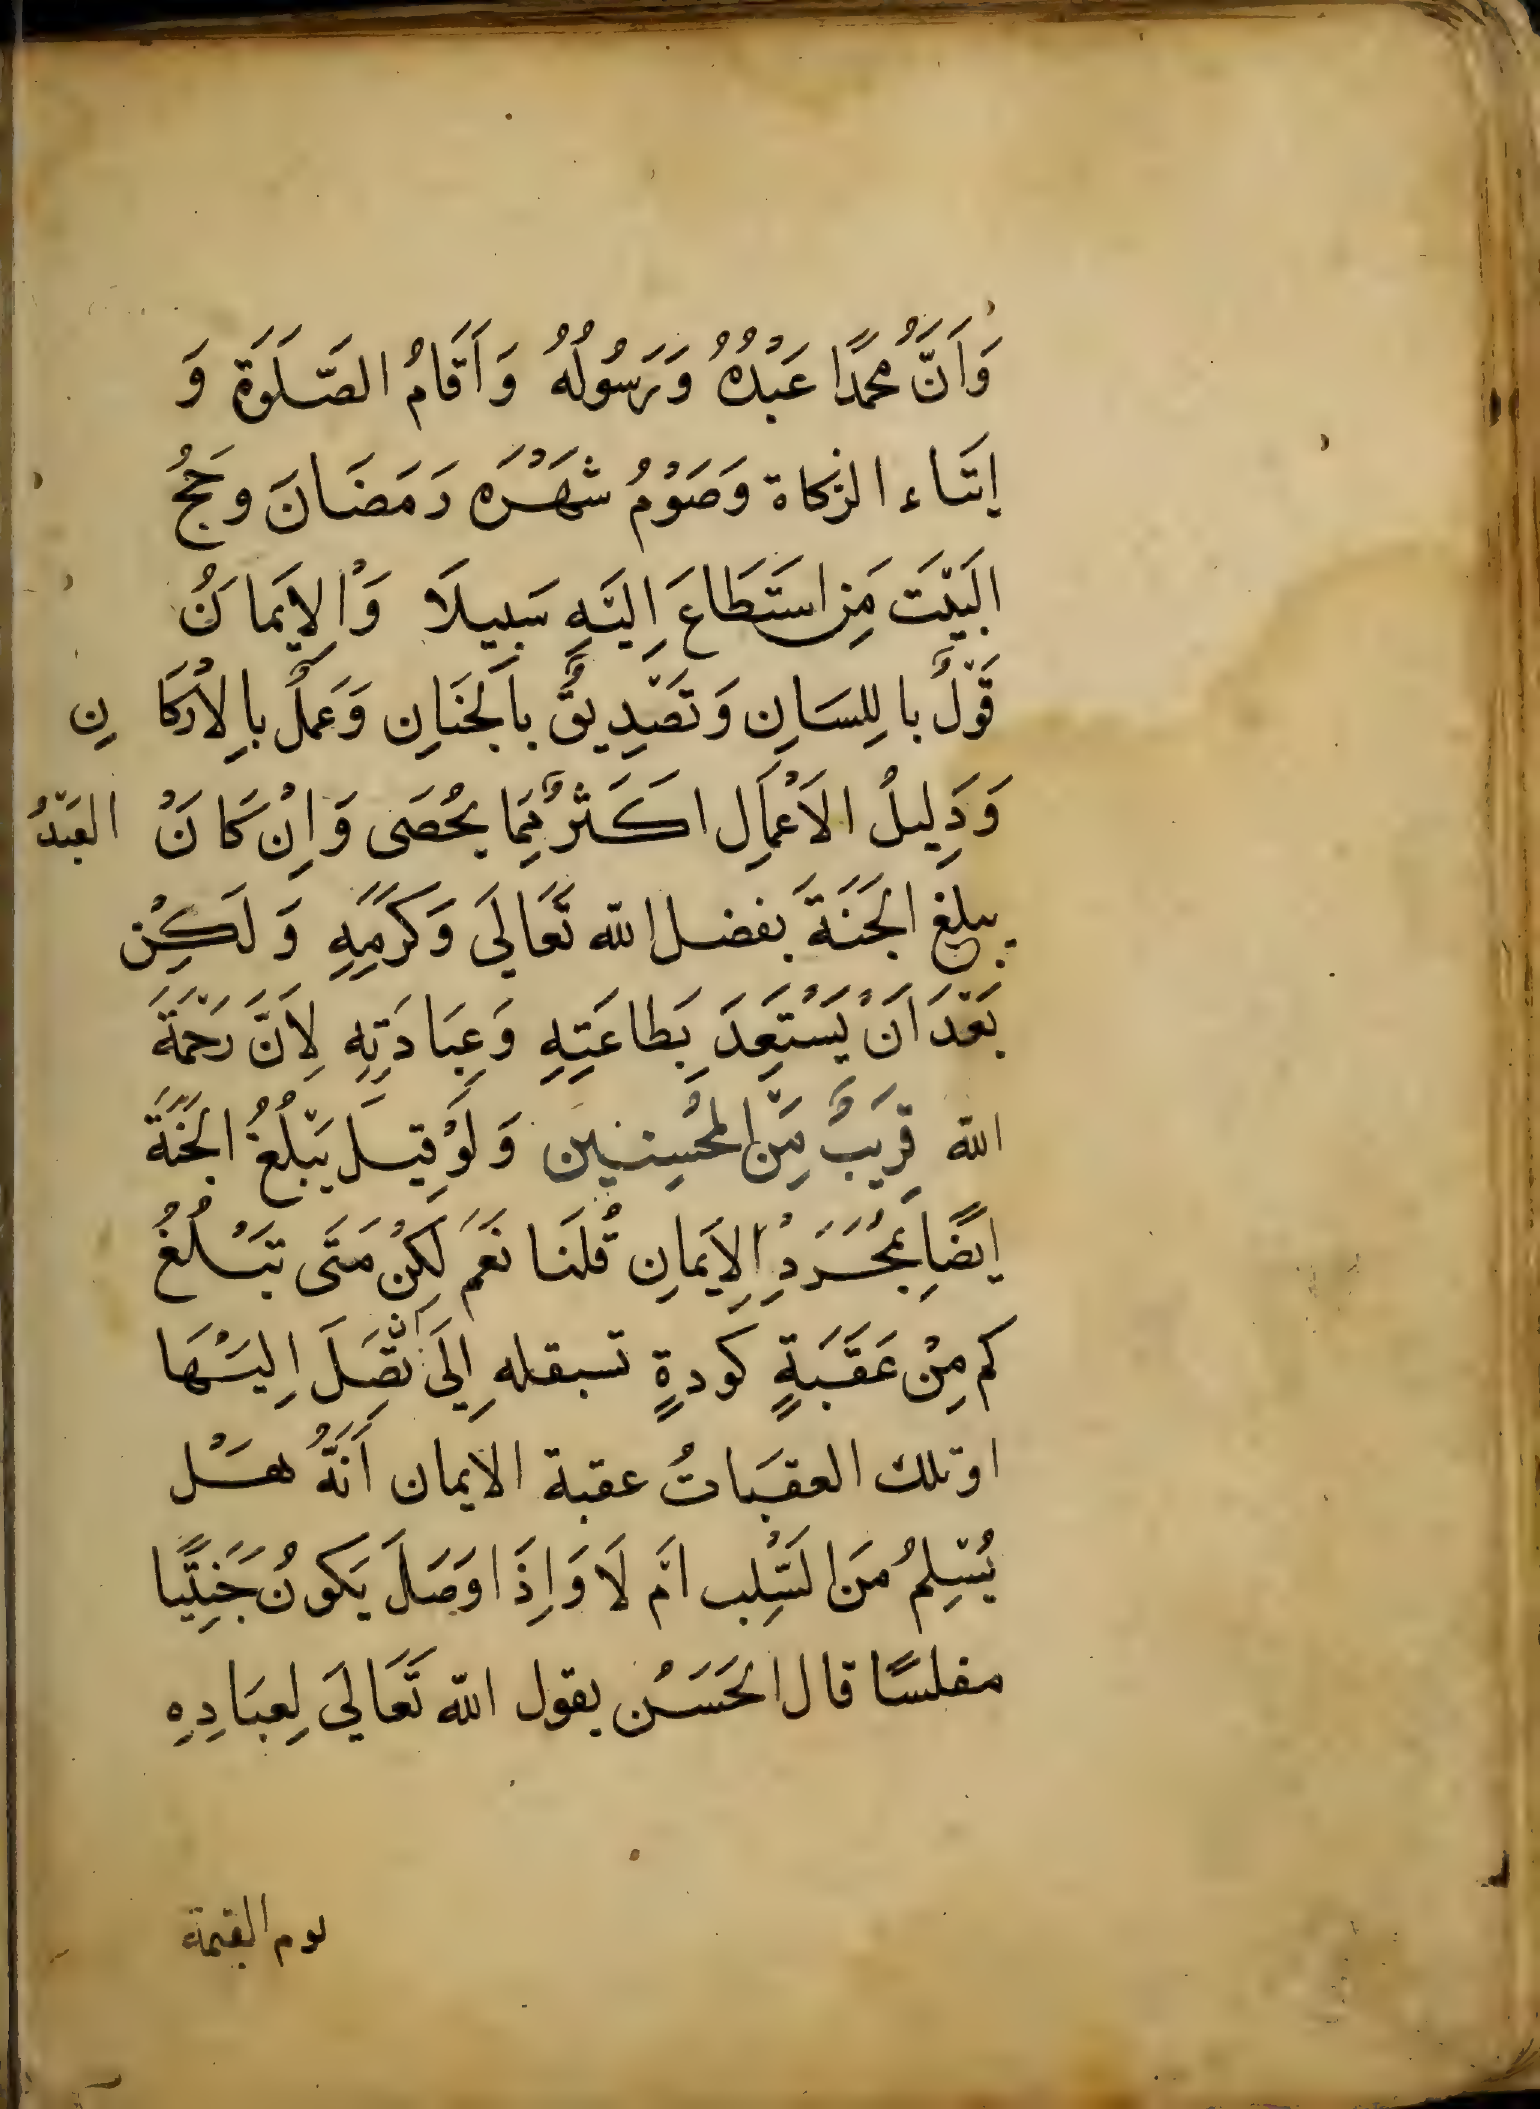 وَاَنَّ مُحَمَّدًا عَبْدُهُ وَرَسُولُهُ وَاَقَامُ الصَّلَوةِ وَ
اِتَاء الزكاة وَصَوْمُ شَهْرَه رَمَضَانَ وحَجُّ
البَيْتَ مَنِ اسْتَطَاعَ اِلَيْهِ سَبِيلَا وَاْلاِيَمانُ
قَوْلٌ باللِسَانِ وَتَصْدِيقٌ بالجَنَانِ وَعَمَلٌ بالاَرْكَانِ
وَدَلِيلُ الاَعْمَالِ اكَثْرُ مِمَا يُحْصَى وَاِنْ كَانَ العَبْدُ
يبلغ الجَنَةَ بفضل الله تَعَالَى وَكَرَمِهِ وَلَكِنْ
بَعْدَ اَنْ يَسْتَعِدَ بِطاعَتِهِ وَعِبَادَتِهِ لِاَنَّ رَحْمَةَ
الله قَرِيَبٌ مِّنَ المُحْسِنينَ وَلَوْ قِيلَ يَبْلُغُ الجَنَةَ
ايضًا بِمُجَرَدِ الاِيَمانِ قُلنَا نَعَمَ لَكِنْ مَتَى تَبْلُغُ
كم مِنْ عَقَبَةٍ كَودةٍ تسبقله اِلَى اَنْ تَصِلَ اِليَهَا
اوتلك العقبَاتُ عقبة الايمان اَنَّهُ هَلْ
يُسْلِمُ مَنَ السَّلِب امَ لَا وَاِذَا وَصَلَ يَكونُ جَنِيًّا
مفلسًا قال الحَسَنُ يقول الله تَعَالَى لِعبَادِهِ
يوم القيمة